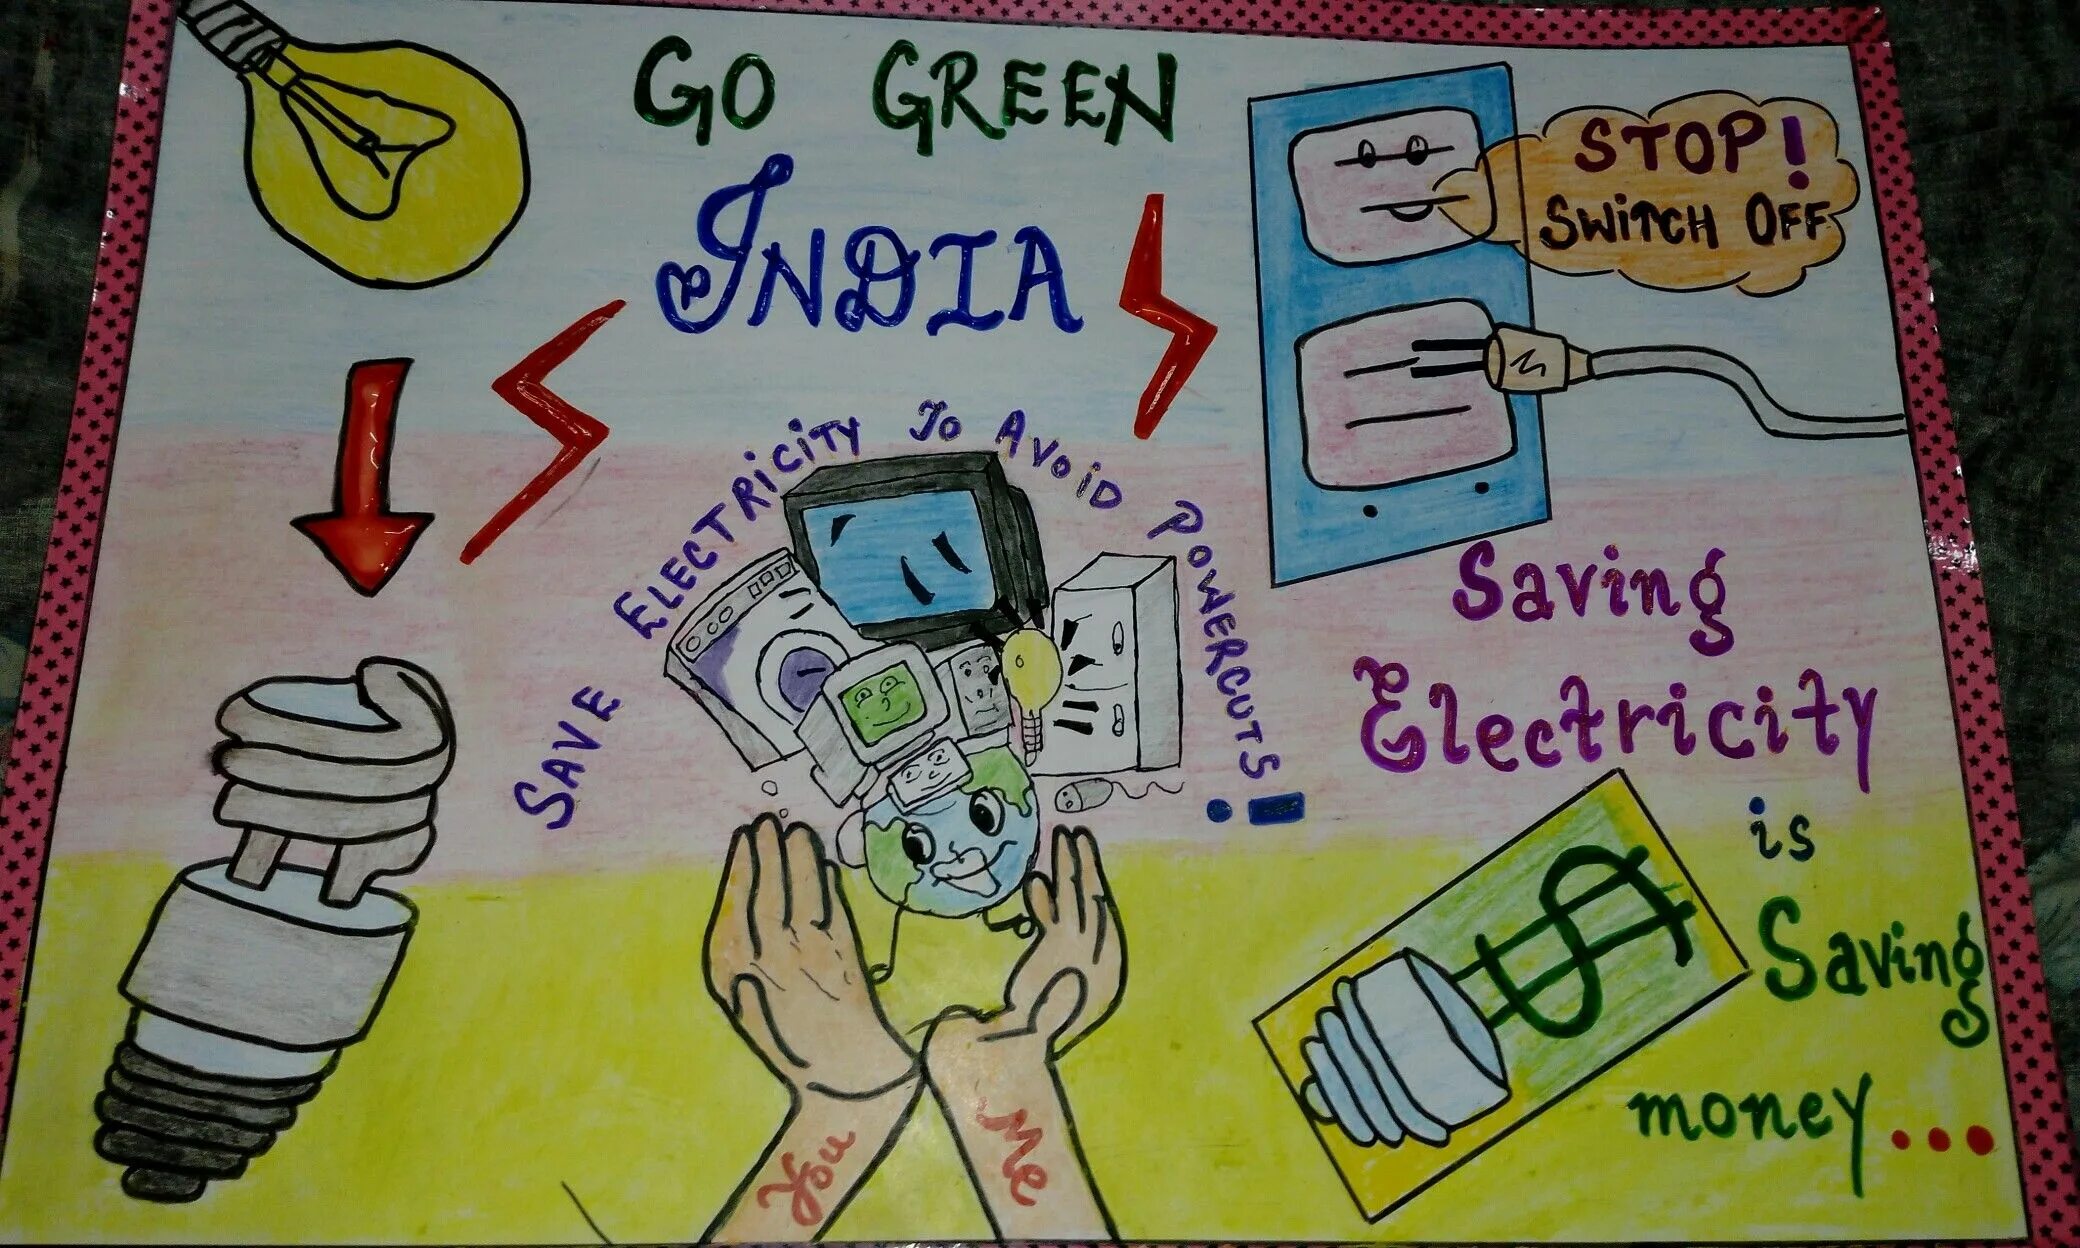 GO GREEN
INDIA
STOP!
SWITCH OFF
SAVE ELECTRICITY TO AVOID POWERCUTS!
Saving
Electricity
is
Saving
money...
You
Me